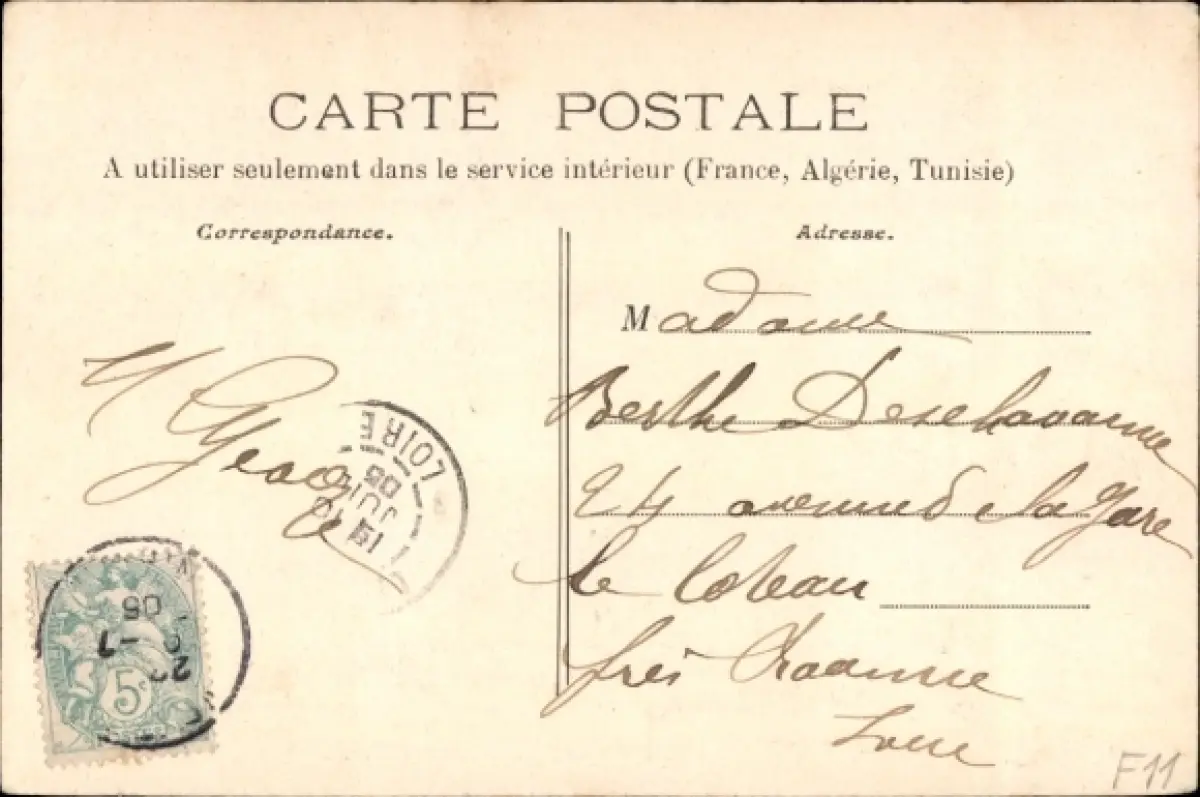 CARTE POSTALE
A utiliser seulement dans le service intérieur (France, Algérie, Tunisie)
Correspondance.
Adresse.
Madame
Berthe Desehavanne
24 avenue de la Gare
le Coteau
près Roanne
Loire
LOIRE
JUIL
05
05
5c
F11